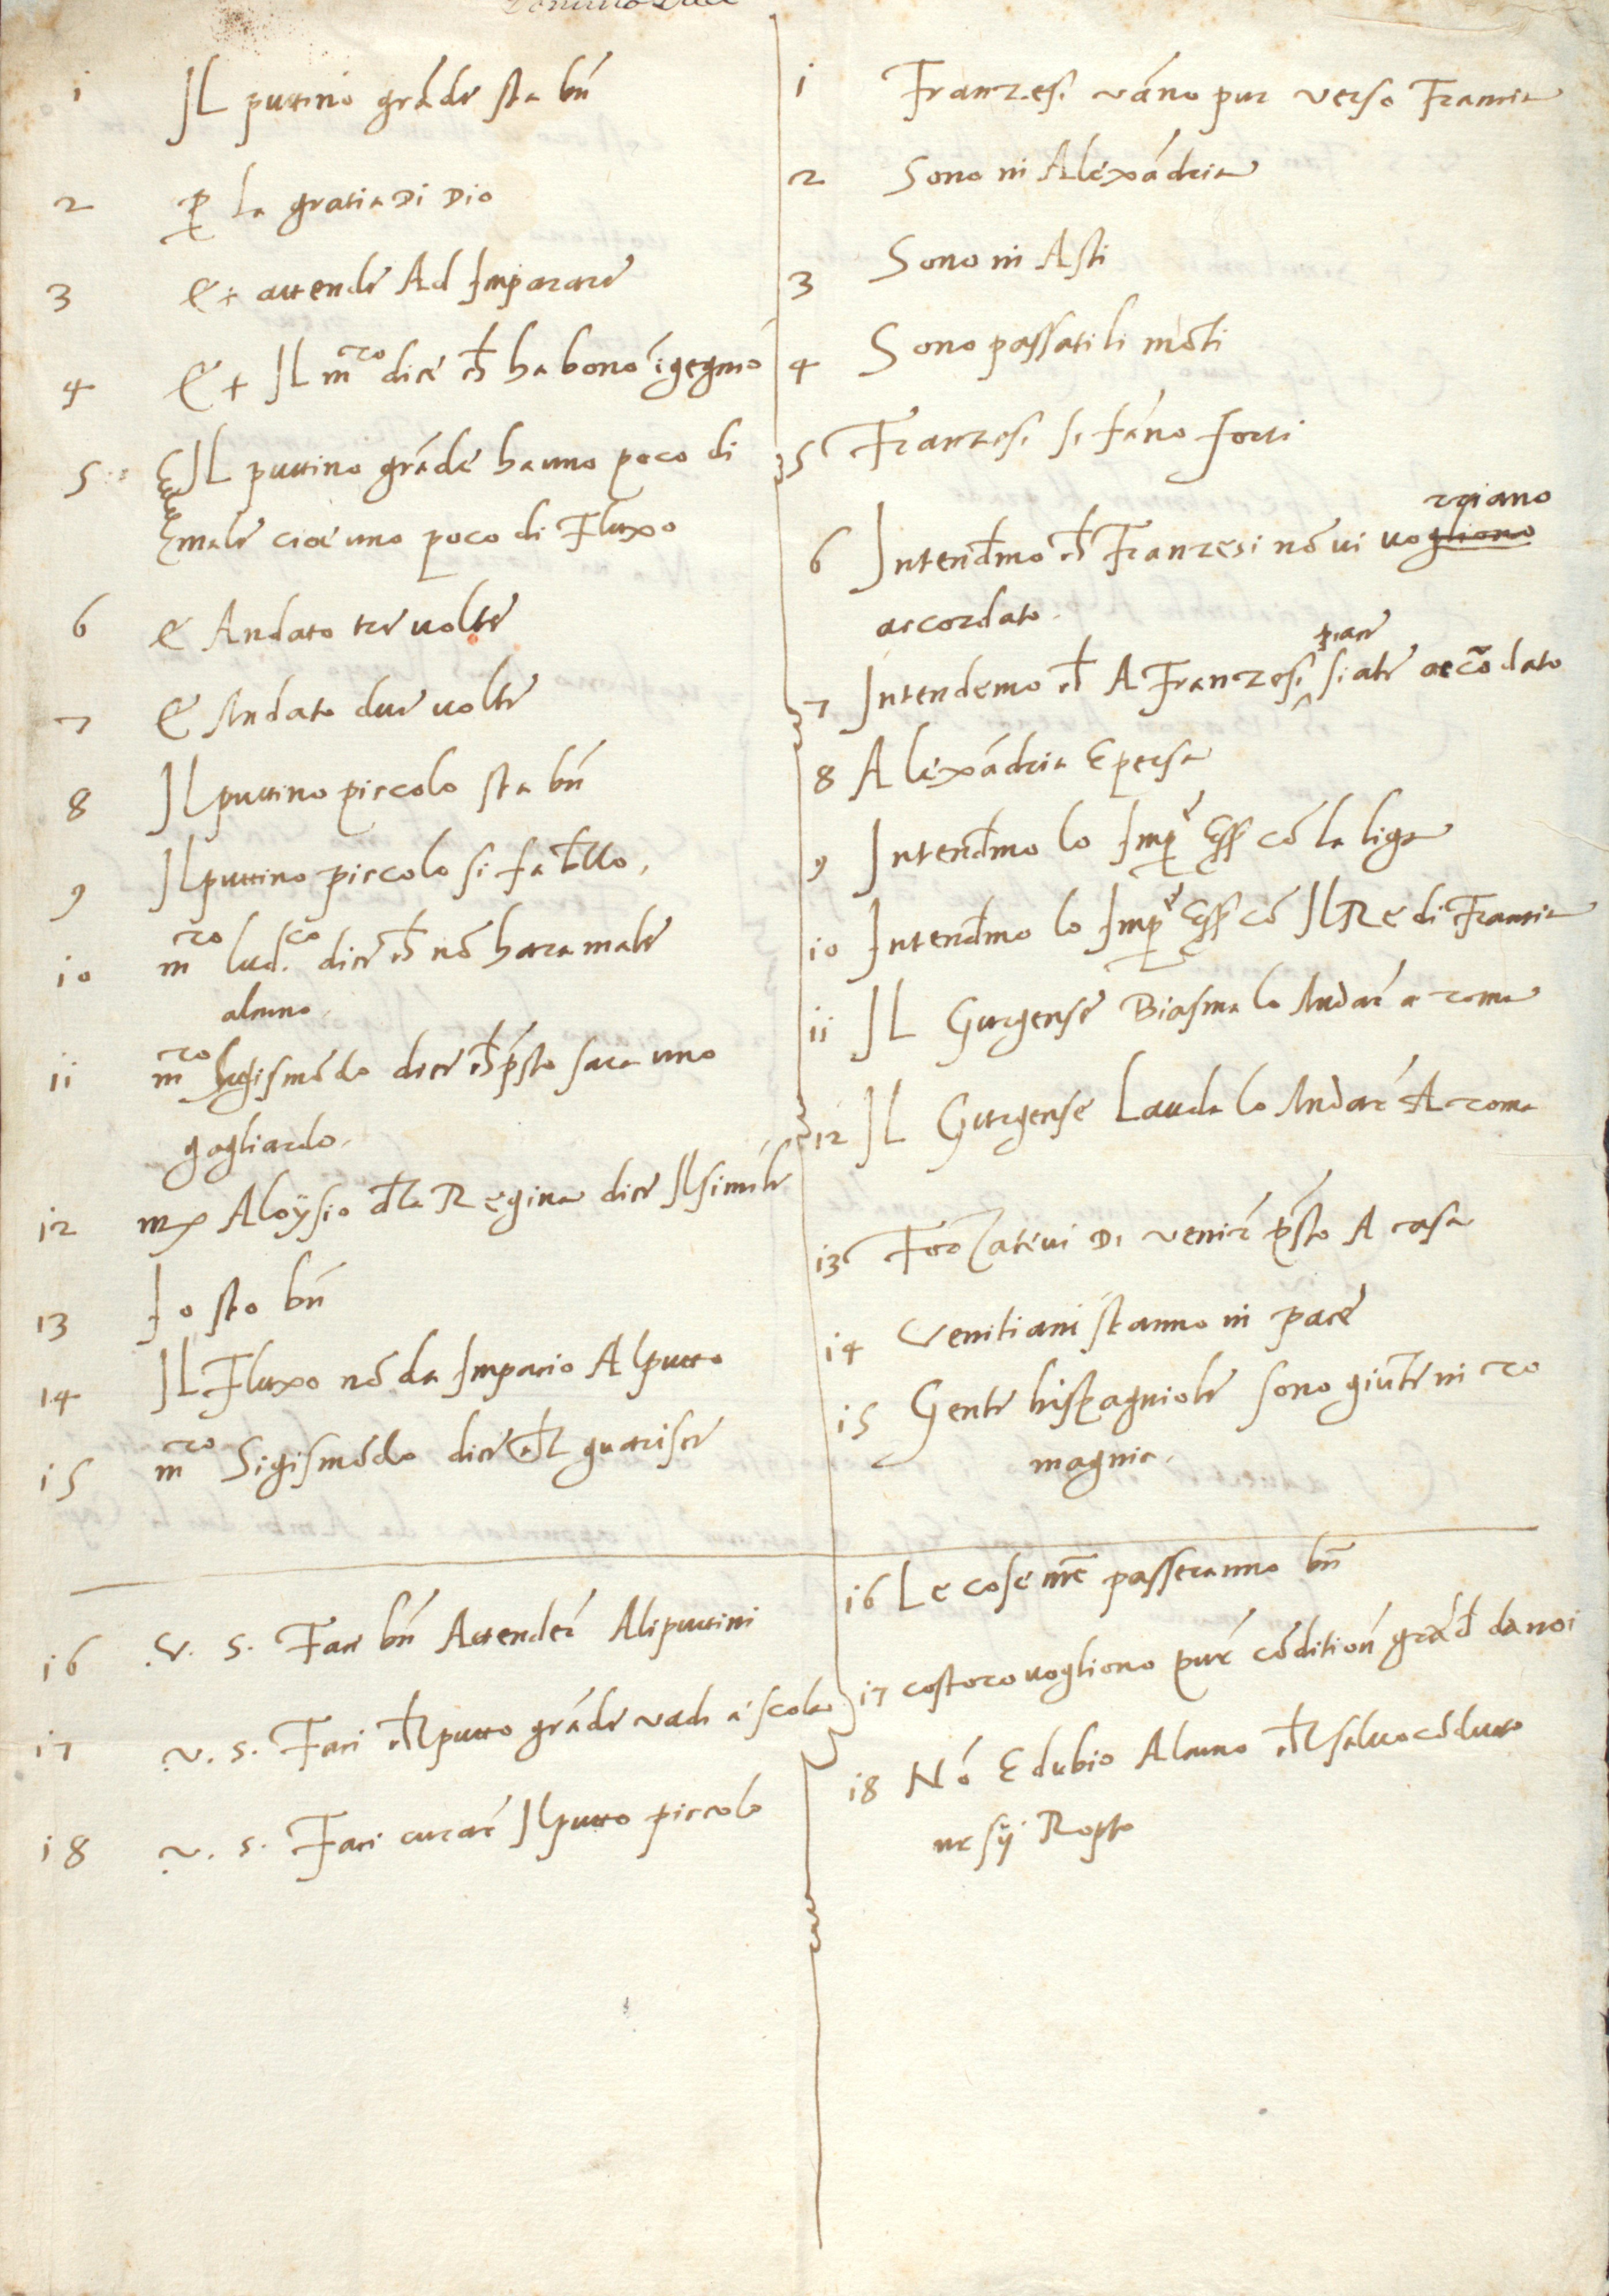 1 Il puttino grāde sta bn̄
2 ꝑ la gratia Di Dio
3 Et attende Ad Imparare
4 Et Il mro dice ch̄ ha bono īgegno
5 Il puttino grāde ha uno poco di
male cioe uno poco di Fluxo
6 E Andato tre uolte
7 E Andato due uolte
8 Il puttino piccolo sta bn̄
9 Il puttino piccolo si fa b̄llo.
10 mro Lud.co dice ch̄ nō hara male
alcuno.
11 mro Sigismōdo dice ch̄ p̄sto sara uno
gagliardo.
12 mẜ Aloysio d̄la Regina dice Il simile
13 Io sto bn̄
14 Il Fluxo nō da Impacio Al putto
15 mro Sigismōdo dice ch̄l guarisce
16 .V. S. Faci bn̄ Attender̄ Ali puttini
17 .V. S. Faci ch̄l putto grāde vadi a scola
18 .V. S. Faci curar̄ Il putto piccolo
1 Franzesi vāno pur verso Francia
2 Sono in Alexādria
3 Sono in Asti
4 Sono passati li mōti
5 Franzesi si fāno forti
rriano
6 Intend̄mo ch̄ Franzesi nō ui uogliono
accordato.
piace
7 Intendemo ch̄ A Franzesi siate accōdato
8 Alexādria E persa
9 Intend̄mo lo Imp̱re Eẜẜ cō la liga
10 Intend̄mo lo Imp̱re Eẜẜ cō Il Re di Francia
11 Il Gurgense Biasma lo Andar̄ a roma
12 Il Gurgense Lauda lo Andar̄ A roma
13 Forzateui Di venir̄ p̄sto A casa
14 Venitiani stanno in pace
15 Gente hispagniole sono giūte in ro
magnia.
16 Le cose nr̄e passeranno bn̄
17 costoro uogliono pur̄ cōdition̄ grād̄ da noi
18 Nō E dubio Alcuno ch̄l saluocōdutto
ue sij Ropto